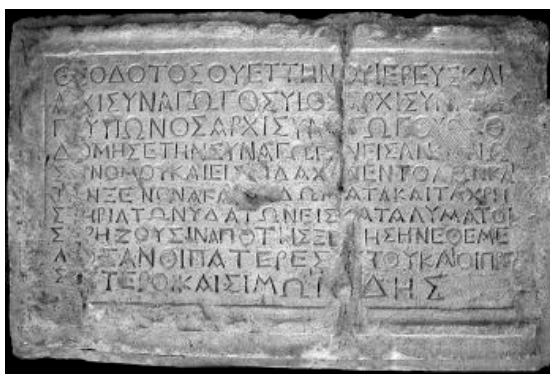 ΘΕΟΔΟΤΟΣΟΥΕΤΤΗΝΟΥΙΕΡΕΥΣΚΑΙ
ΑΡΧΙΣΥΝΑΓΩΓΟΣΥΙΟΣΑΡΧΙΣΥΝ
ΥΙΩΝΟΣΑΡΧΙΣΥΝΑΓΩΓΟΥ
ΔΟΜΗΣΕΤΗΝΣΥΝΑΓΩΓΗΝΕΙΣΑΝ
ΝΟΜΟΥΚΑΙΕΙΣΔΙΔΑΧΗΝΕΝΤΟΛΩΝΚΑΙ
ΤΟΝΞΕΝΩΝΑΚΑΙΤΑΔΩΜΑΤΑΚΑΙΤΑΧΡΗ
ΣΤΗΡΙΑΤΩΝΥΔΑΤΩΝΕΙΣΚΑΤΑΛΥΜΑΤΟΙ
ΣΧΡΗΖΟΥΣΙΝΑΠΟΤΗΣΞΕΝΗΣΗΝΕΘΕΜΕ
ΛΙΩΣΑΝΟΙΠΑΤΕΡΕΣΑΥΤΟΥΚΑΙΟΙΠΡΕ
ΣΒΥΤΕΡΟΙΚΑΙΣΙΜΩΝΙΔΗΣ